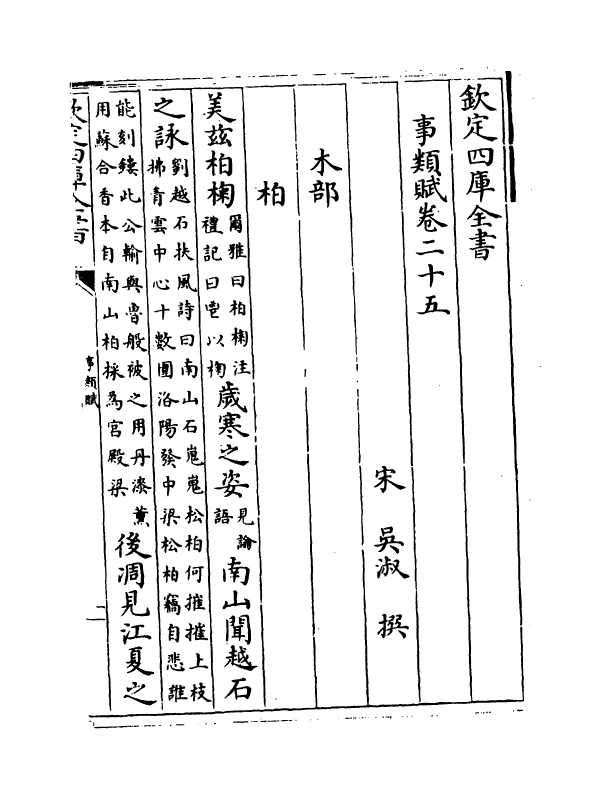 欽定四庫全書
事類賦卷二十五
宋 吳淑 撰
木部
柏
美兹柏椈爾雅曰柏椈注禮記曰鬯以椈歲寒之姿見論語南山聞越石
之詠劉越石扶風詩曰南山石嵬嵬松柏何摧摧上枝拂青雲中心十數圍洛陽發中梁松柏竊自悲誰
能刻鏤此公輸與魯般被之用丹漆薰用蘇合香本自南山柏採為宮殿梁後凋見江夏之
事類賦